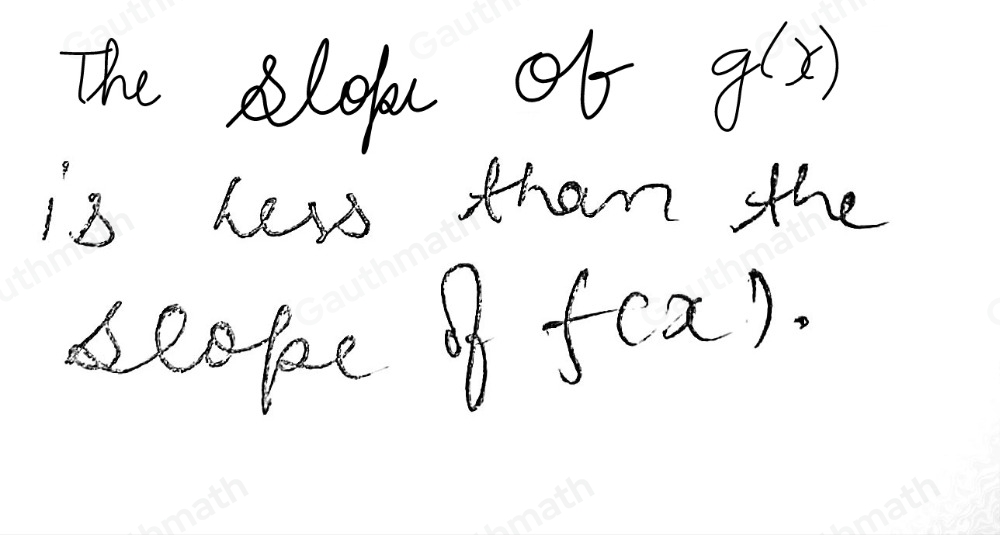 The slope of g(x)
is less than the
slope of f(x).